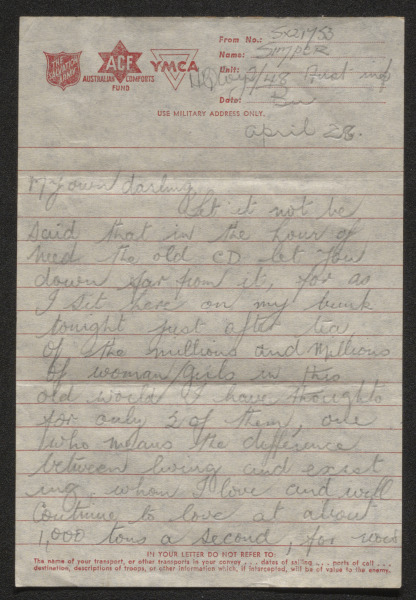 THE SALVATION ARMY
ACF
AUSTRALIAN COMFORTS FUND
YMCA
From No.: SX21753
Name: Simper
Unit: 2/48 Aust inf
Date: Bn
USE MILITARY ADDRESS ONLY.
April 28.
My own darling
Let it not be
said that in the hour of
need the old CD let you
down far from it, for as
I sit here on my bunk
tonight just after tea,
of the millions and millions
of woman girls in this
old world I have thoughts
for only 2 of them, one
who means the difference
between living and exist
ing, whom I love and will
continue to love at about
1,000 tons a second, for
IN YOUR LETTER DO NOT REFER TO:
The name of your transport, or other transports in your convoy . . . dates of sailing . . . ports of call . . .
destination, descriptions of troops, or other information which, if intercepted, will be of value to the enemy.